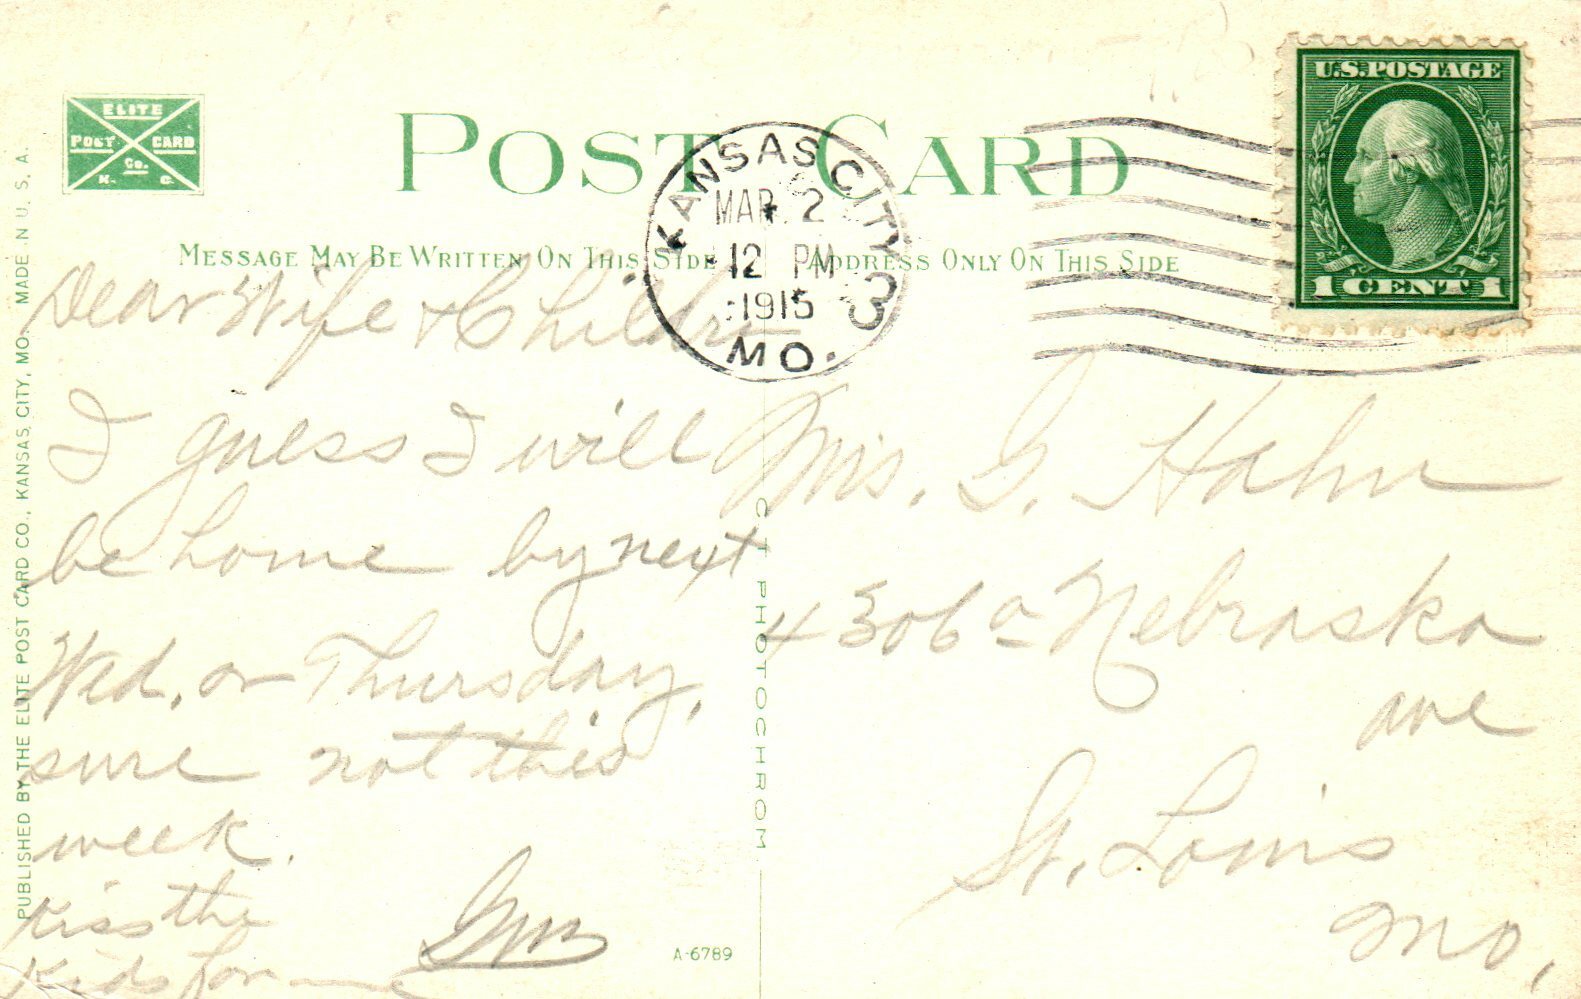 ELITE
POST CARD
Co.
K. C.
POST CARD
MESSAGE MAY BE WRITTEN ON THIS SIDE
ADDRESS ONLY ON THIS SIDE
KANSAS CITY
MAR 2
12 PM
1915
3
MO.
U.S. POSTAGE
1 CENT 1
Dear Wife & Childre
I guess I will
be home by next
Wed. or Thursday,
sure not this
week.
Kiss the
Kids for
Mrs. G. Hahn
4306a Nebraska
ave
St. Louis
Mo,
C.T. PHOTOCHROM
A-6789
PUBLISHED BY THE ELITE POST CARD CO., KANSAS CITY, MO. MADE N U. S. A.